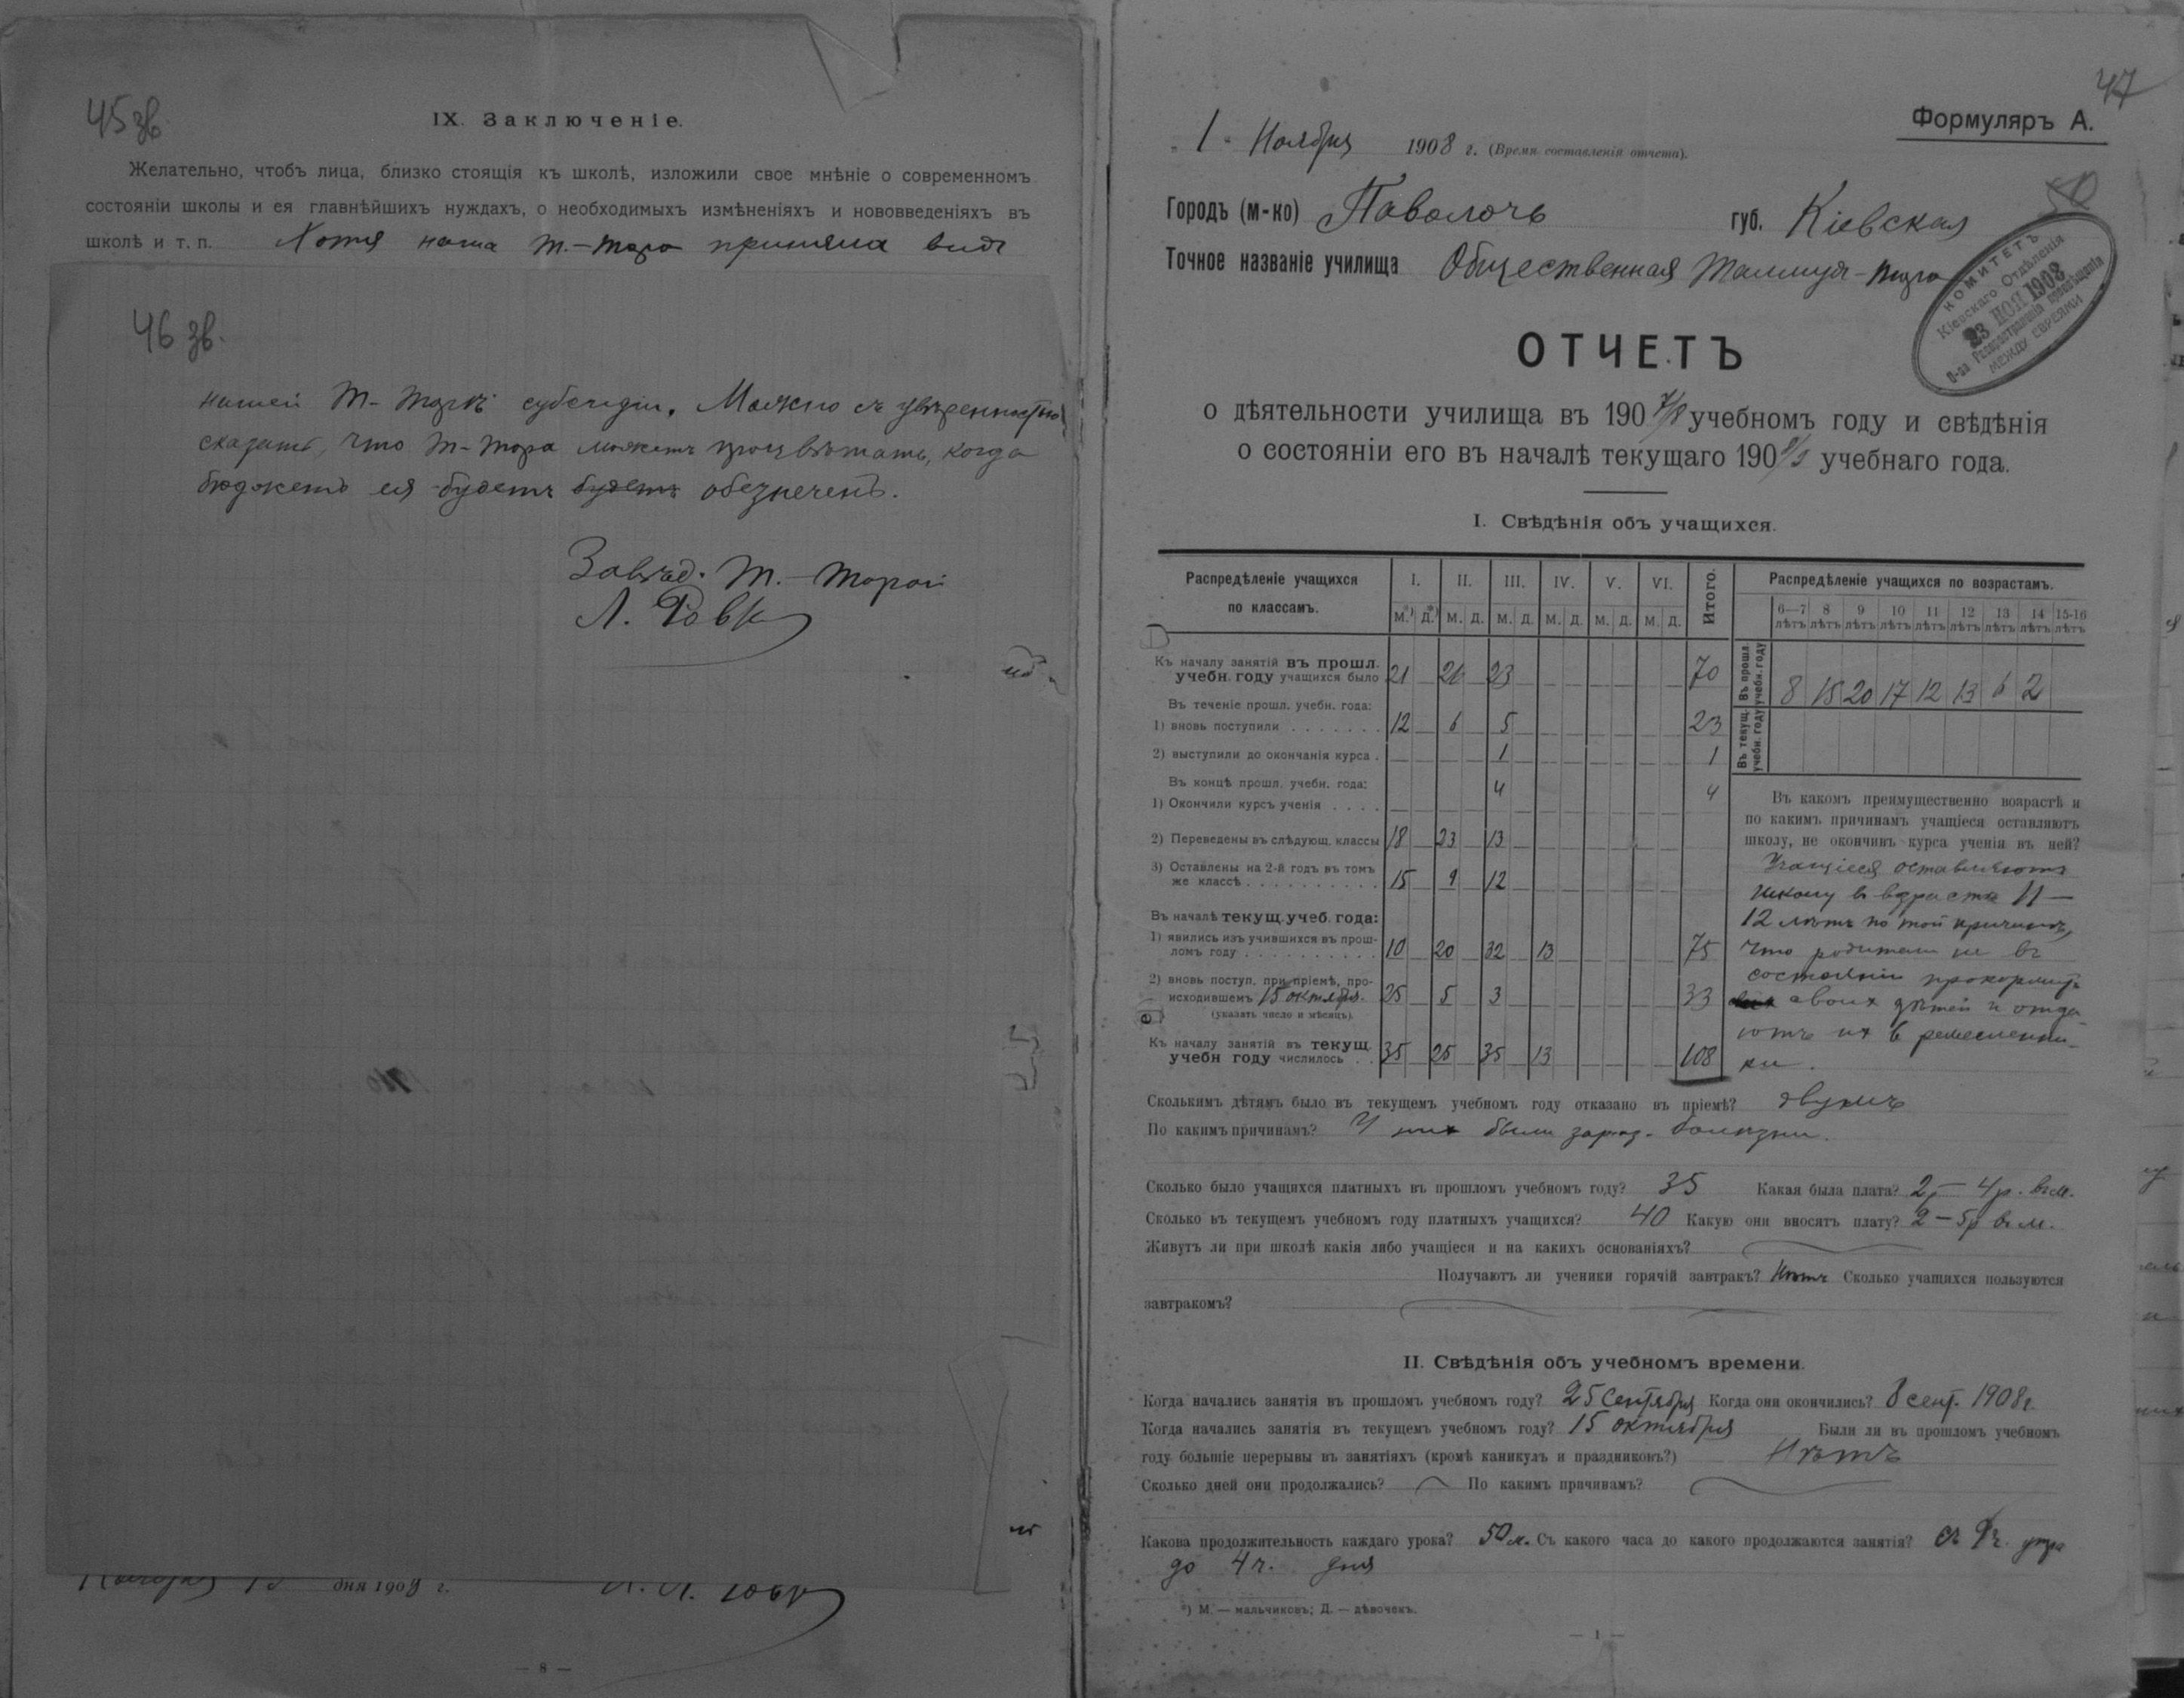 45 зв.
IX. Заключеніе.
Желательно, чтобъ лица, близко стоящія къ школѣ, изложили свое мнѣніе о современномъ
состояніи школы и ея главнѣйшихъ нуждахъ, о необходимыхъ измѣненіяхъ и нововведеніяхъ въ
школѣ и т. п. Хотя наша Т.-Тора приняла видъ
46 зв.
нашей Т-Торѣ субсидіи. Можно съ увѣренностью
сказать, что Т-Тора можетъ процвѣтать, когда
бюджетъ ея будетъ будетъ обезпеченъ.
Завѣд. Т.-Торой
Л. Ровк
дня 1908 г.
— 8 —
47
Формуляръ А.
1 Ноября 1908 г. (Время составленія отчета).
Городъ (м-ко) Паволочь губ. Кіевская
Точное названіе училища Общественная Талмудъ-Тора
КОМИТЕТЪ
Кіевскаго Отдѣленія
23 НОЯ 1908
О-ва Распространенія просвѣщенія
МЕЖДУ ЕВРЕЯМИ
ОТЧЕТЪ
о дѣятельности училища въ 190 7/8 учебномъ году и свѣдѣнія
о состояніи его въ началѣ текущаго 190 8/9 учебнаго года.
I. Свѣдѣнія объ учащихся.
Распредѣленіе учащихся по классамъ. I. II. III. IV. V. VI. Итого.
м.*) д.*) м. д. м. д. м. д. м. д. м. д.
Къ началу занятій въ прошл. учебн. году учащихся было 21 26 23 70
Въ теченіе прошл. учебн. года:
1) вновь поступили 12 6 5 23
2) выступили до окончанія курса 1 1
Въ концѣ прошл. учебн. года:
1) Окончили курсъ ученія 4 4
2) Переведены въ слѣдующ. классы 18 23 13
3) Оставлены на 2-й годъ въ томъ же классѣ 15 9 12
Въ началѣ текущ. учеб. года:
1) явились изъ учившихся въ прошломъ году 10 20 32 13 75
2) вновь поступ. при пріемѣ, происходившемъ 15 октября. 25 5 3 33
(указать число и мѣсяцъ).
Къ началу занятій въ текущ. учебн году числилось 35 25 35 13 108
Распредѣленіе учащихся по возрастамъ.
6—7 лѣтъ 8 лѣтъ 9 лѣтъ 10 лѣтъ 11 лѣтъ 12 лѣтъ 13 лѣтъ 14 лѣтъ 15-16 лѣтъ
Въ прошл. учебн. году 8 15 20 17 12 13 6 2
Въ текущ. учебн. году
Въ какомъ преимущественно возрастѣ и
по какимъ причинамъ учащіеся оставляютъ
школу, не окончивъ курса ученія въ ней?
Учащіеся оставляютъ
школу въ возрастѣ 11—
12 лѣтъ по той причинѣ,
что родители не въ
состояніи прокормить
своихъ дѣтей и отда-
ютъ ихъ въ ремесленни-
ки.
Сколькимъ дѣтямъ было въ текущемъ учебномъ году отказано въ пріемѣ? двумъ
По какимъ причинамъ? У нихъ были зараз. болѣзни.
Сколько было учащихся платныхъ въ прошломъ учебномъ году? 35 Какая была плата? 2р—4р. въ м.
Сколько въ текущемъ учебномъ году платныхъ учащихся? 40 Какую они вносятъ плату? 2—5р въ м.
Живутъ ли при школѣ какія либо учащіеся и на какихъ основаніяхъ?
Получаютъ ли ученики горячій завтракъ? Нѣтъ Сколько учащихся пользуются
завтракомъ?
II. Свѣдѣнія объ учебномъ времени.
Когда начались занятія въ прошломъ учебномъ году? 25 Сентября Когда они окончились? 8 сент. 1908 г.
Когда начались занятія въ текущемъ учебномъ году? 15 октября Были ли въ прошломъ учебномъ
году большіе перерывы въ занятіяхъ (кромѣ каникулъ и праздниковъ?) Нѣтъ
Сколько дней они продолжались? По какимъ причинамъ?
Какова продолжительность каждаго урока? 50 м. Съ какого часа до какого продолжаются занятія? съ 9 ч. утра
до 4 ч. дня
*) М. — мальчиковъ; Д. — дѣвочекъ.
— 1 —